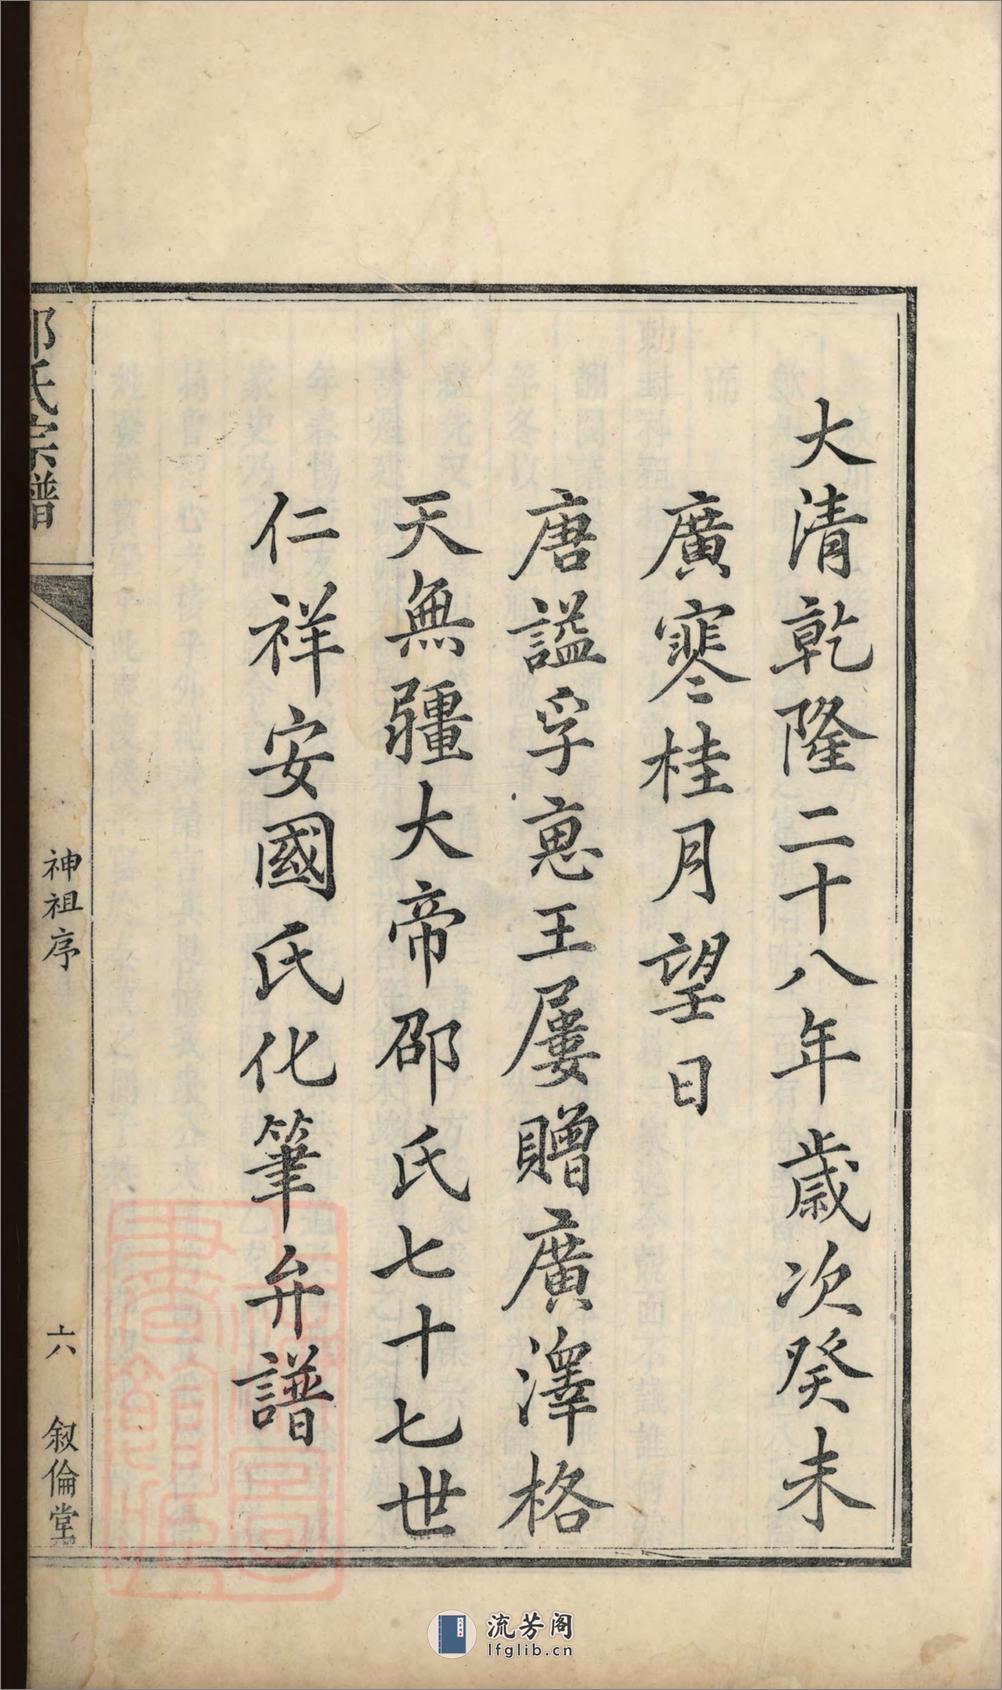 大清乾隆二十八年歲次癸未
廣寒桂月望日
唐謚孚惠王屢贈廣澤格
天無疆大帝邵氏七十七世
仁祥安國氏化筆弁譜
氏宗譜
神祖序
六
敘倫堂
流芳阁
lfglib.cn